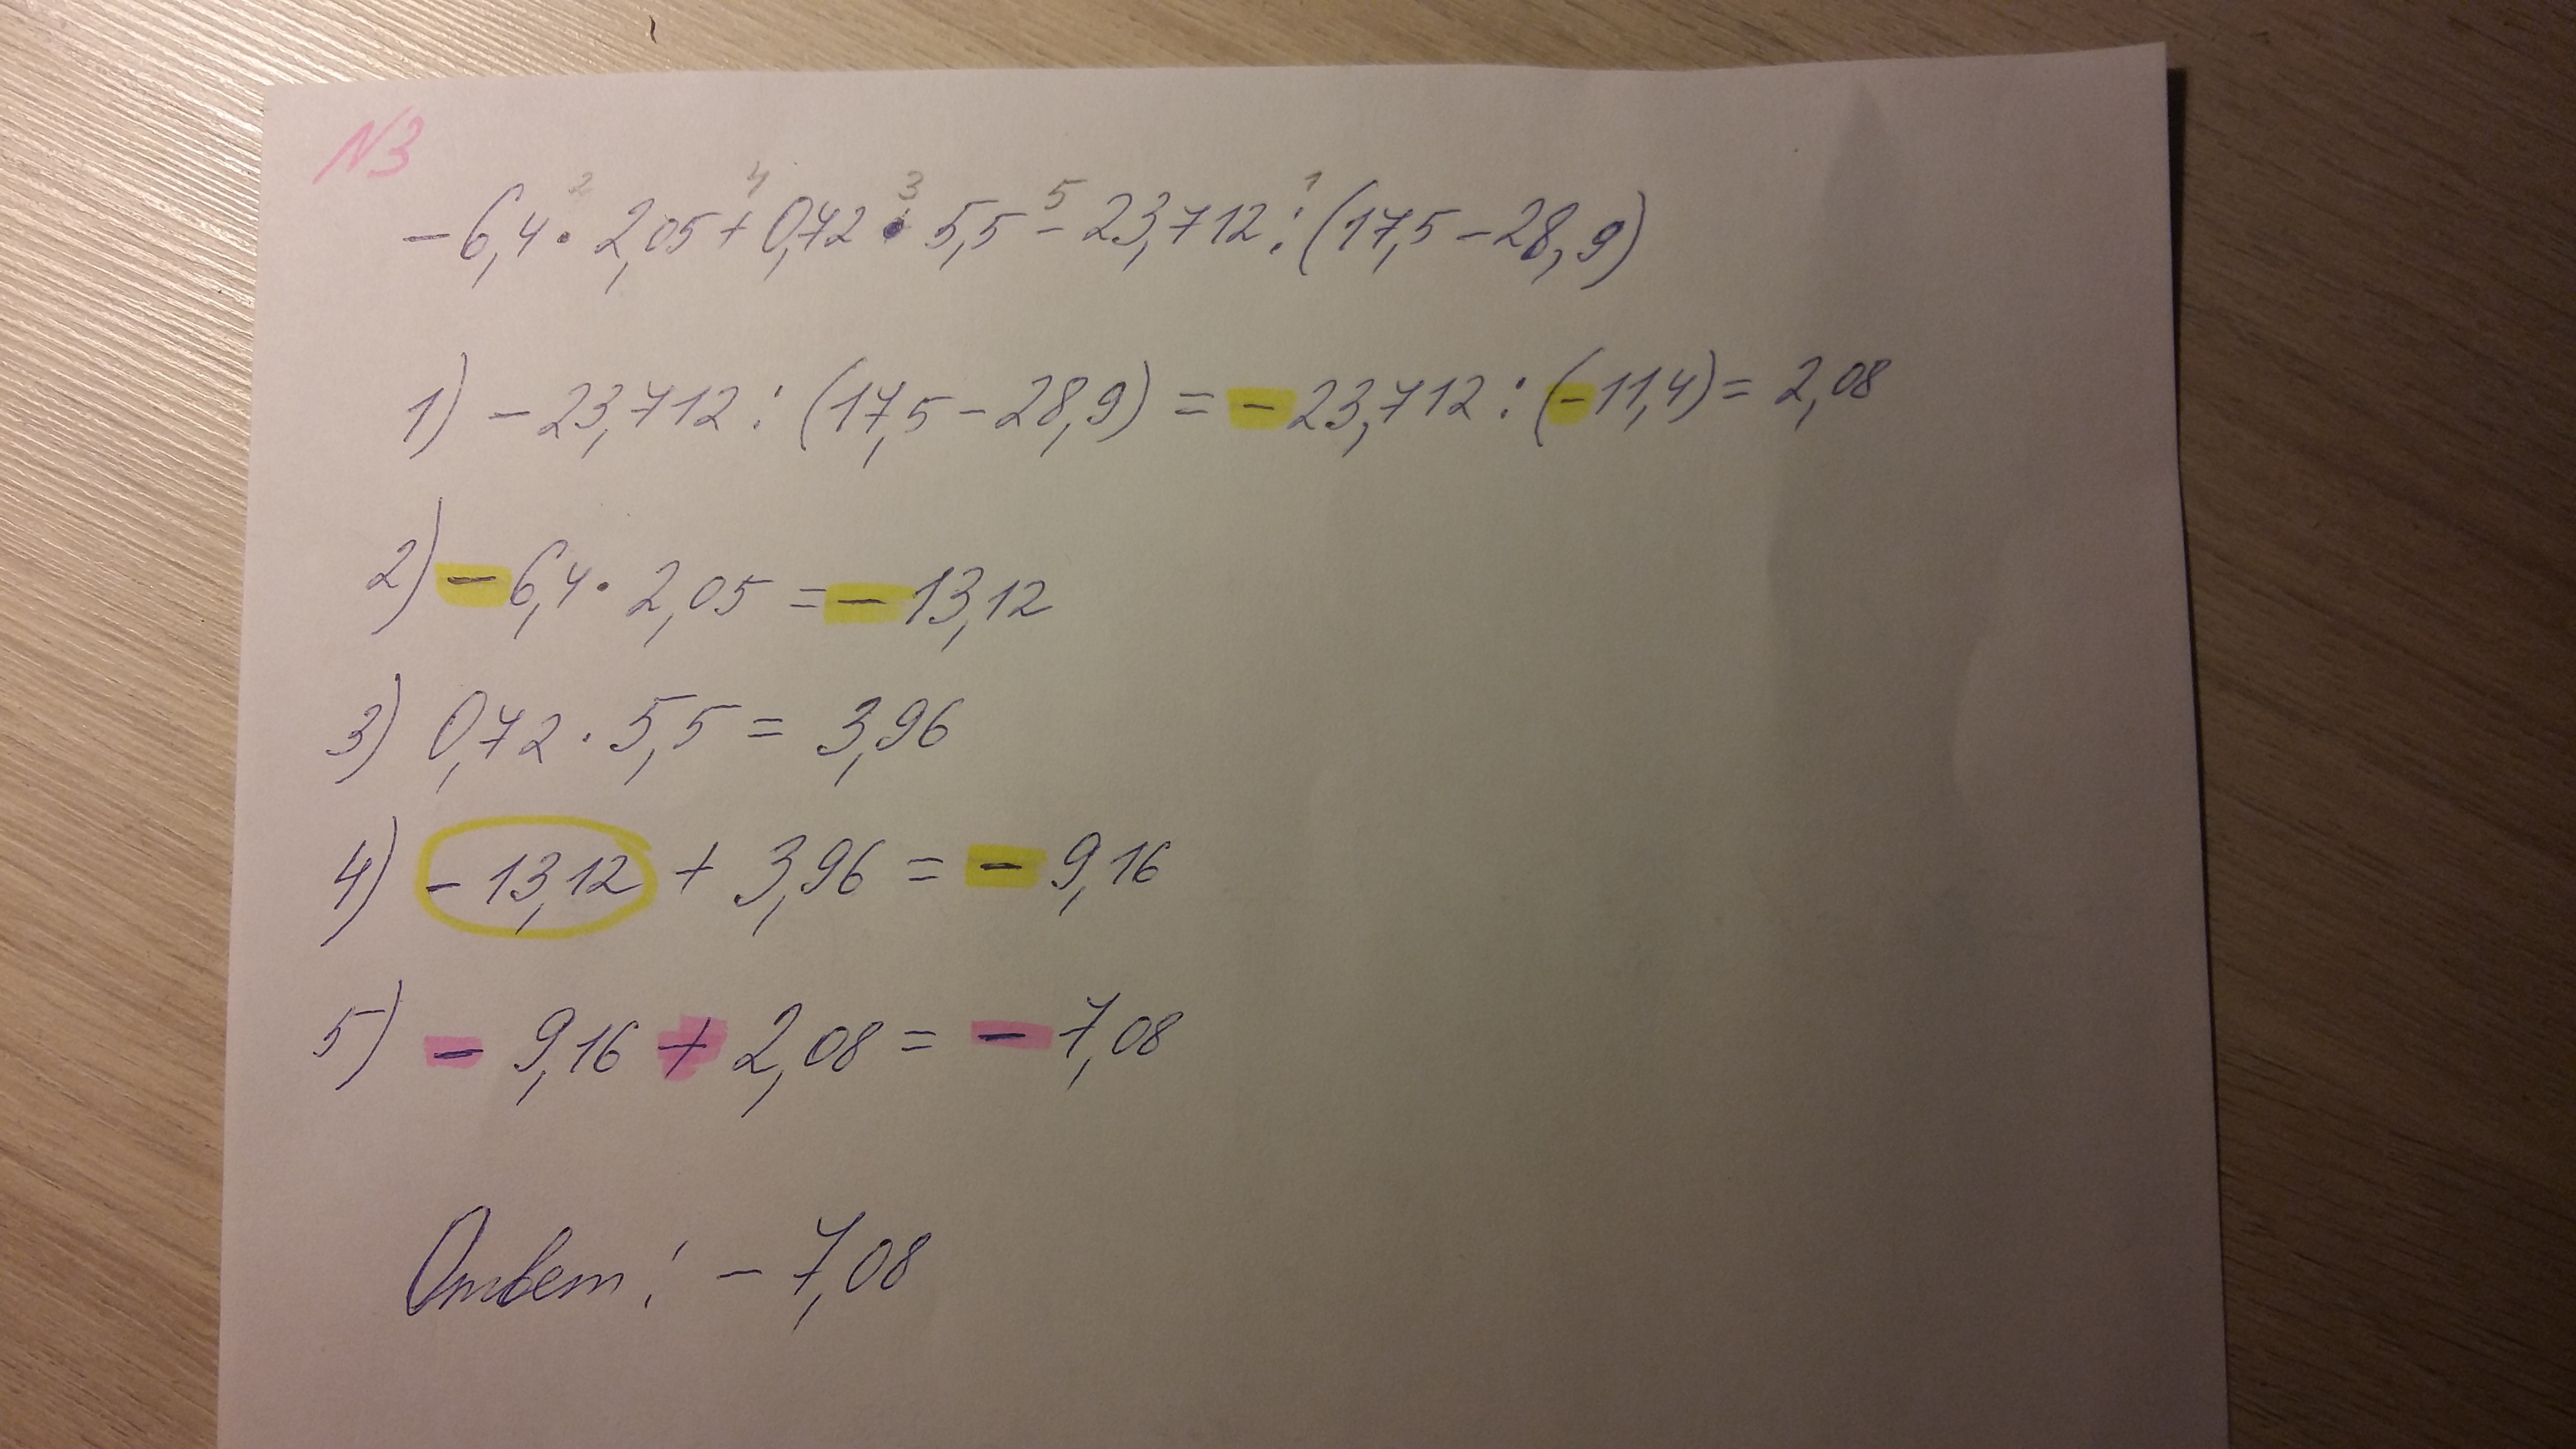 N3
2 4 3 5 1
-6,4 · 2,05 + 0,72 · 5,5 - 23,712 : (17,5 - 28,9)
1) - 23,712 : (17,5 - 28,9) = - 23,712 : (-11,4) = 2,08
2) - 6,4 · 2,05 = - 13,12
3) 0,72 · 5,5 = 3,96
4) - 13,12 + 3,96 = - 9,16
5) - 9,16 + 2,08 = - 7,08
Ответ: - 7,08